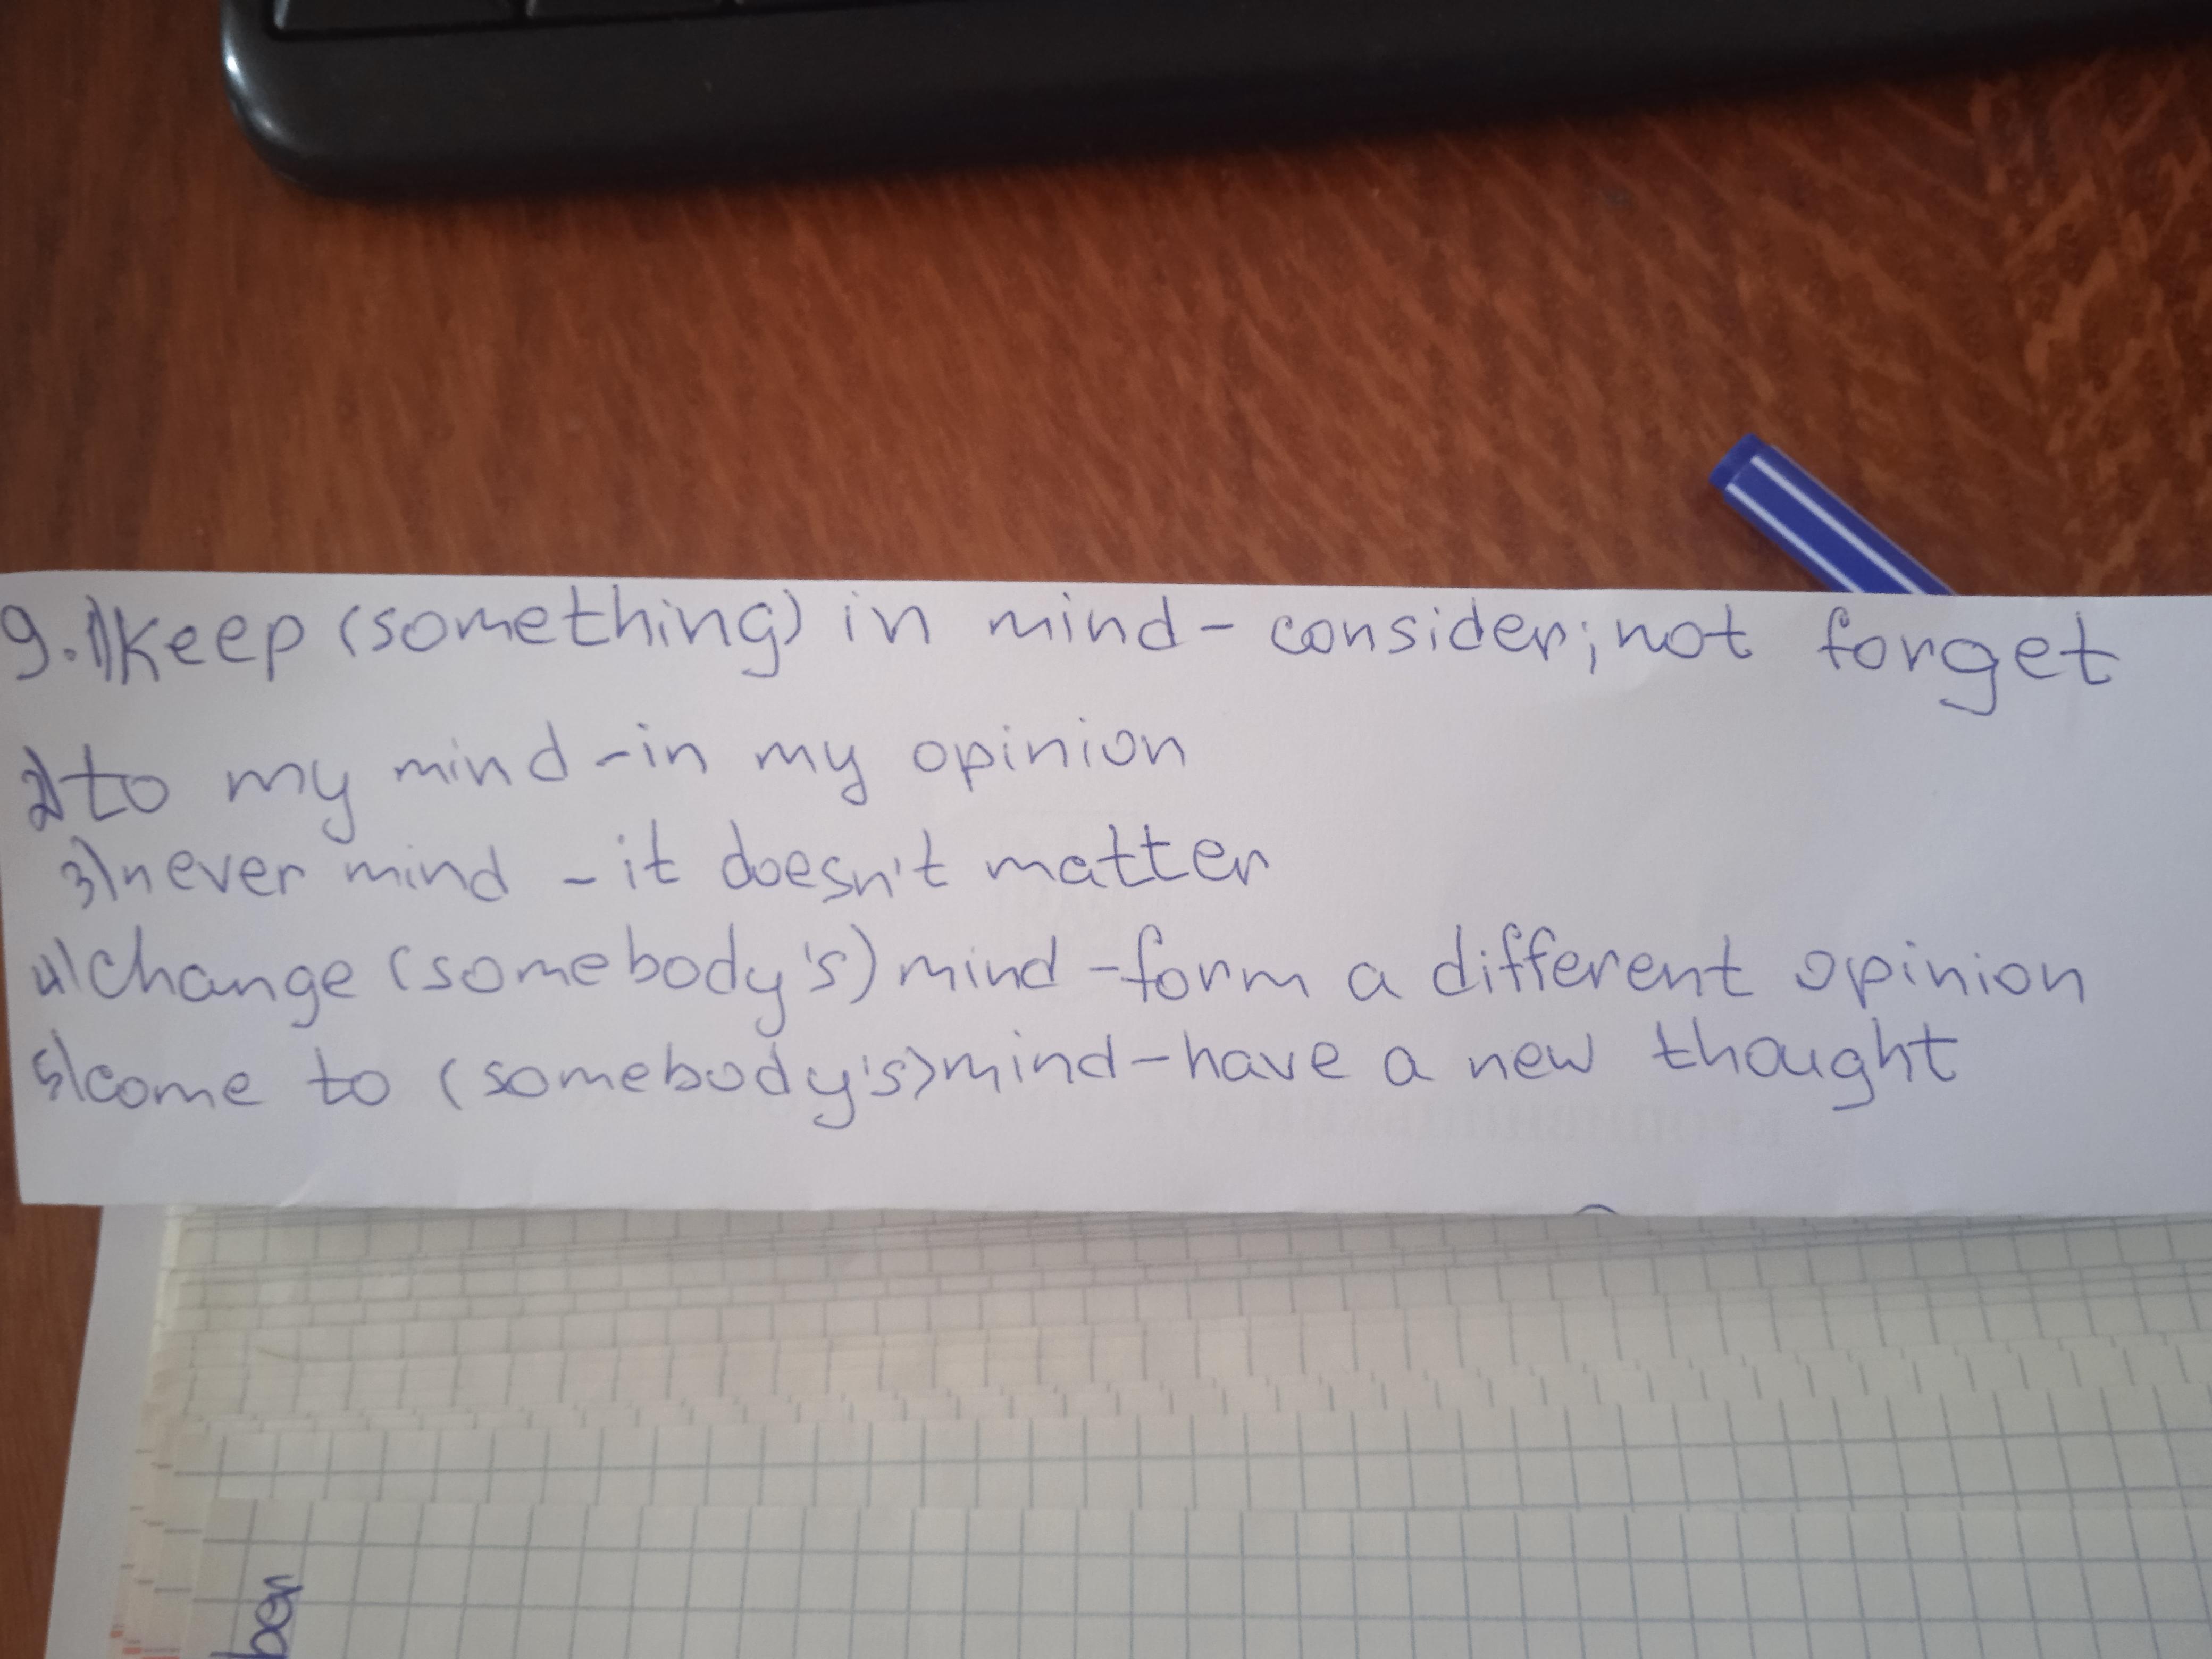 9. 1) keep (something) in mind - consider; not forget
2) to my mind - in my opinion
3) never mind - it doesn't matter
4) change (somebody's) mind - form a different opinion
5) come to (somebody's) mind - have a new thought
ber